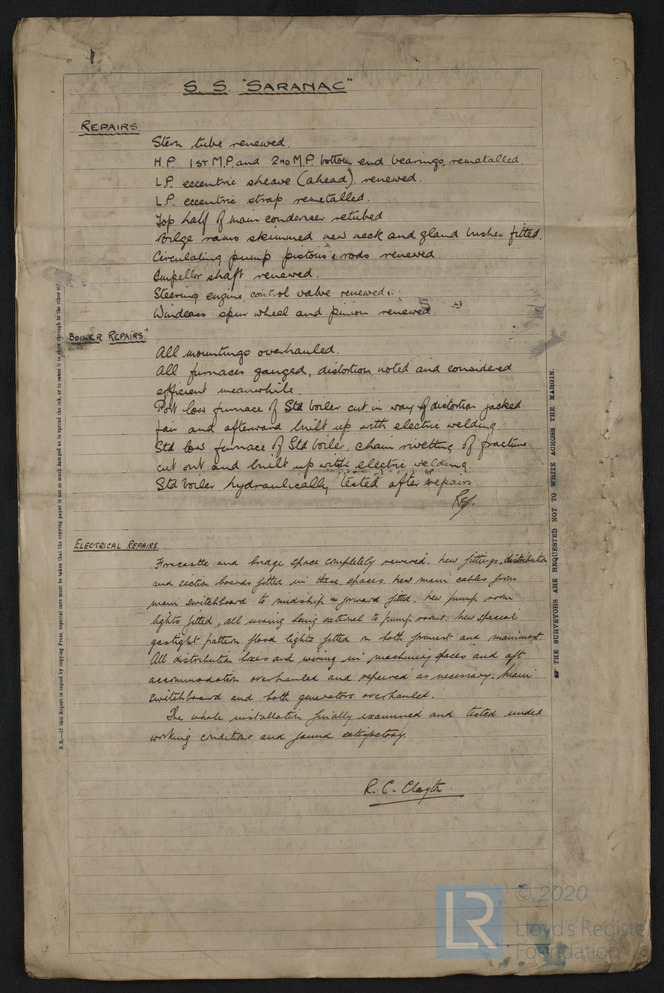 S. S. "SARANAC"
REPAIRS
Stern tube renewed.
H.P. 1ST M.P. and 2ND M.P. bottom end bearings remetalled.
L.P. eccentric sheave (ahead) renewed.
L.P. eccentric strap remetalled.
Top half of main condenser retubed
Bilge rams skimmed new neck and gland bushes fitted.
Circulating pump pistons & rods renewed.
Impellor shaft renewed.
Steering engine control valve renewed.
Windlass spur wheel and pinion renewed
BOILER REPAIRS.
All mountings overhauled.
All furnaces gauged, distortion noted and considered
efficient meanwhile
Port low furnace of Stbd boiler cut in way of distortion jacked
fair and afterward built up with electric welding
Stbd low furnace of Stbd boiler, chain rivetting of fracture
cut out and built up with electric welding.
Stbd boiler hydraulically tested after repairs
ELECTRICAL REPAIRS.
Forecastle and bridge space completely rewired. New fittings, distribution
and section boards fitted in these spaces. New main cables from
main switchboard to midship & forward fitted. New pump room
lights fitted, all wiring being external to pump rooms. New special
gastight pattern flood lights fitted on both foremast and mainmast.
All distribution boxes and wiring in machinery spaces and aft
accommodation overhauled and repaired as necessary. Main
switchboard and both generators overhauled.
The whole installation finally examined and tested under
working conditions and found satisfactory.
R. C. Clayton
THE SURVEYORS ARE REQUESTED NOT TO WRITE ACROSS THE MARGIN.
© 2020
LR
Lloyd's Register
Foundation